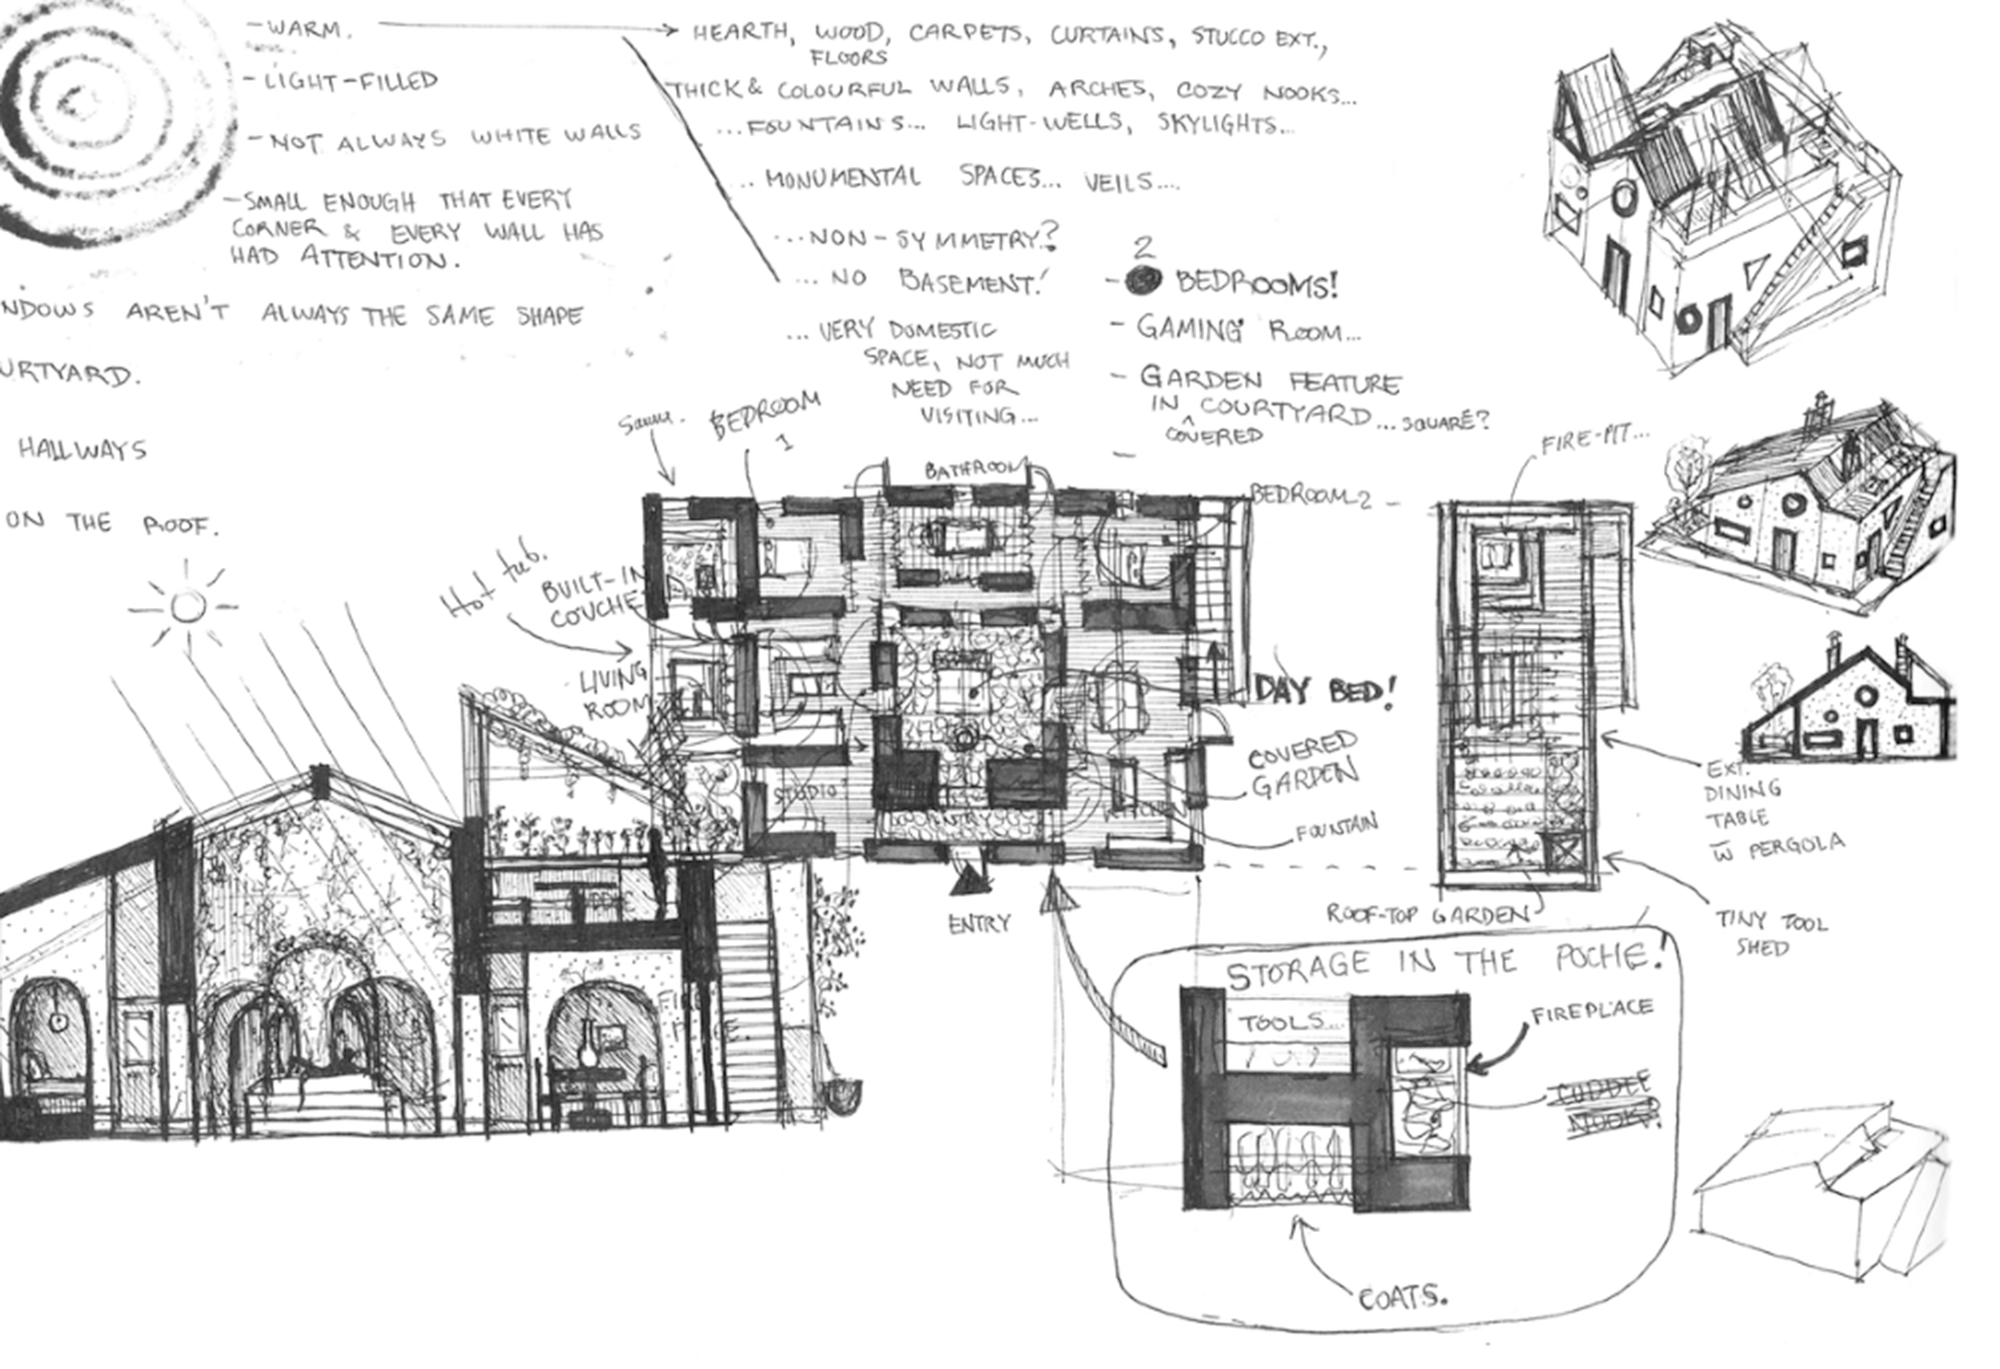 -WARM.
-LIGHT-FILLED
-NOT ALWAYS WHITE WALLS
-SMALL ENOUGH THAT EVERY
CORNER & EVERY WALL HAS
HAD ATTENTION.
NDOWS AREN'T ALWAYS THE SAME SHAPE
URTYARD.
HALLWAYS
ON THE ROOF.
HEARTH, WOOD, CARPETS, CURTAINS, STUCCO EXT.,
FLOORS
THICK & COLOURFUL WALLS, ARCHES, COZY NOOKS...
...FOUNTAINS... LIGHT-WELLS, SKYLIGHTS...
... MONUMENTAL SPACES... VEILS...
...NON-SYMMETRY?
... NO BASEMENT!
... VERY DOMESTIC
SPACE, NOT MUCH
NEED FOR
VISITING...
2
- BEDROOMS!
- GAMING ROOM...
- GARDEN FEATURE
IN ^ COURTYARD ... SQUARE?
COVERED
BEDROOM
1
BATHROOM
BEDROOM 2 -
FIRE-PIT...
Hot tub.
BUILT-IN
COUCHE
LIVING
ROOM
STUDIO
KITCHEN
ENTRY
DAY BED!
COVERED
GARDEN
FOUNTAIN
ENTRY
EXT.
DINING
TABLE
W PERGOLA
ROOF-TOP GARDEN
TINY TOOL
SHED
STORAGE IN THE POCHE!
TOOLS...
FIREPLACE
CUDDLE
NOOK?
COATS.